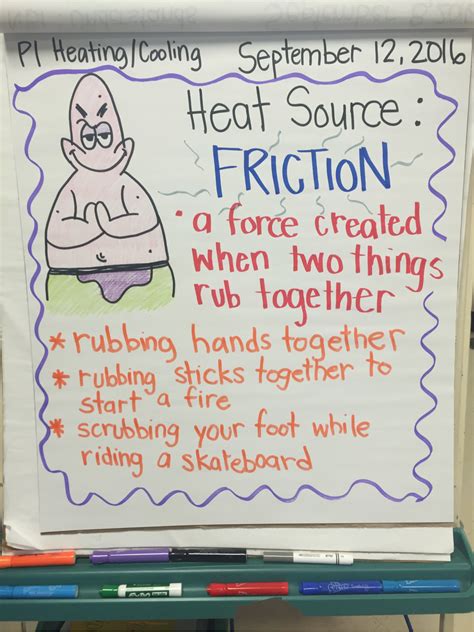 PI Heating/Cooling September 12, 2016
Heat Source:
FRICTION
• a force created
when two things
rub together
* rubbing hands together
* rubbing sticks together to
start a fire
* scrubbing your foot while
riding a skateboard